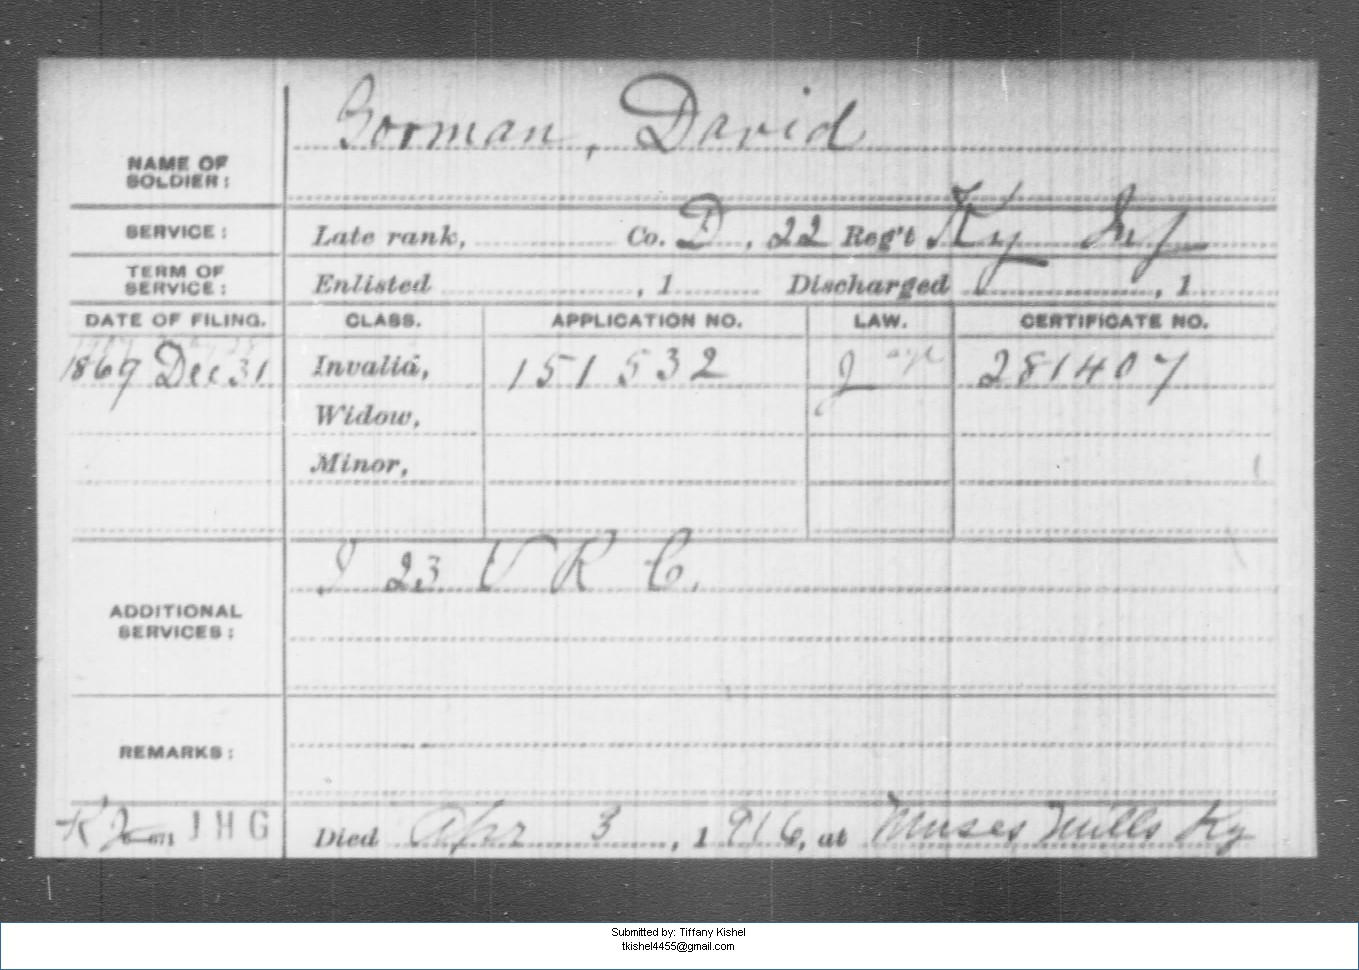 Gorman, David
NAME OF
SOLDIER:
SERVICE: Late rank, Co. D, 22 Reg't Ky Inf
TERM OF
SERVICE: Enlisted , 1 Discharged , 1
DATE OF FILING. CLASS. APPLICATION NO. LAW. CERTIFICATE NO.
1869 Dec 31 Invalid, 151532 281407
Widow,
Minor,
I 23 V R C.
ADDITIONAL
SERVICES:
REMARKS:
JHG Died Apr 3, 1916, at Muses Mills Ky
Submitted by: Tiffany Kishel
tkishel4455@gmail.com